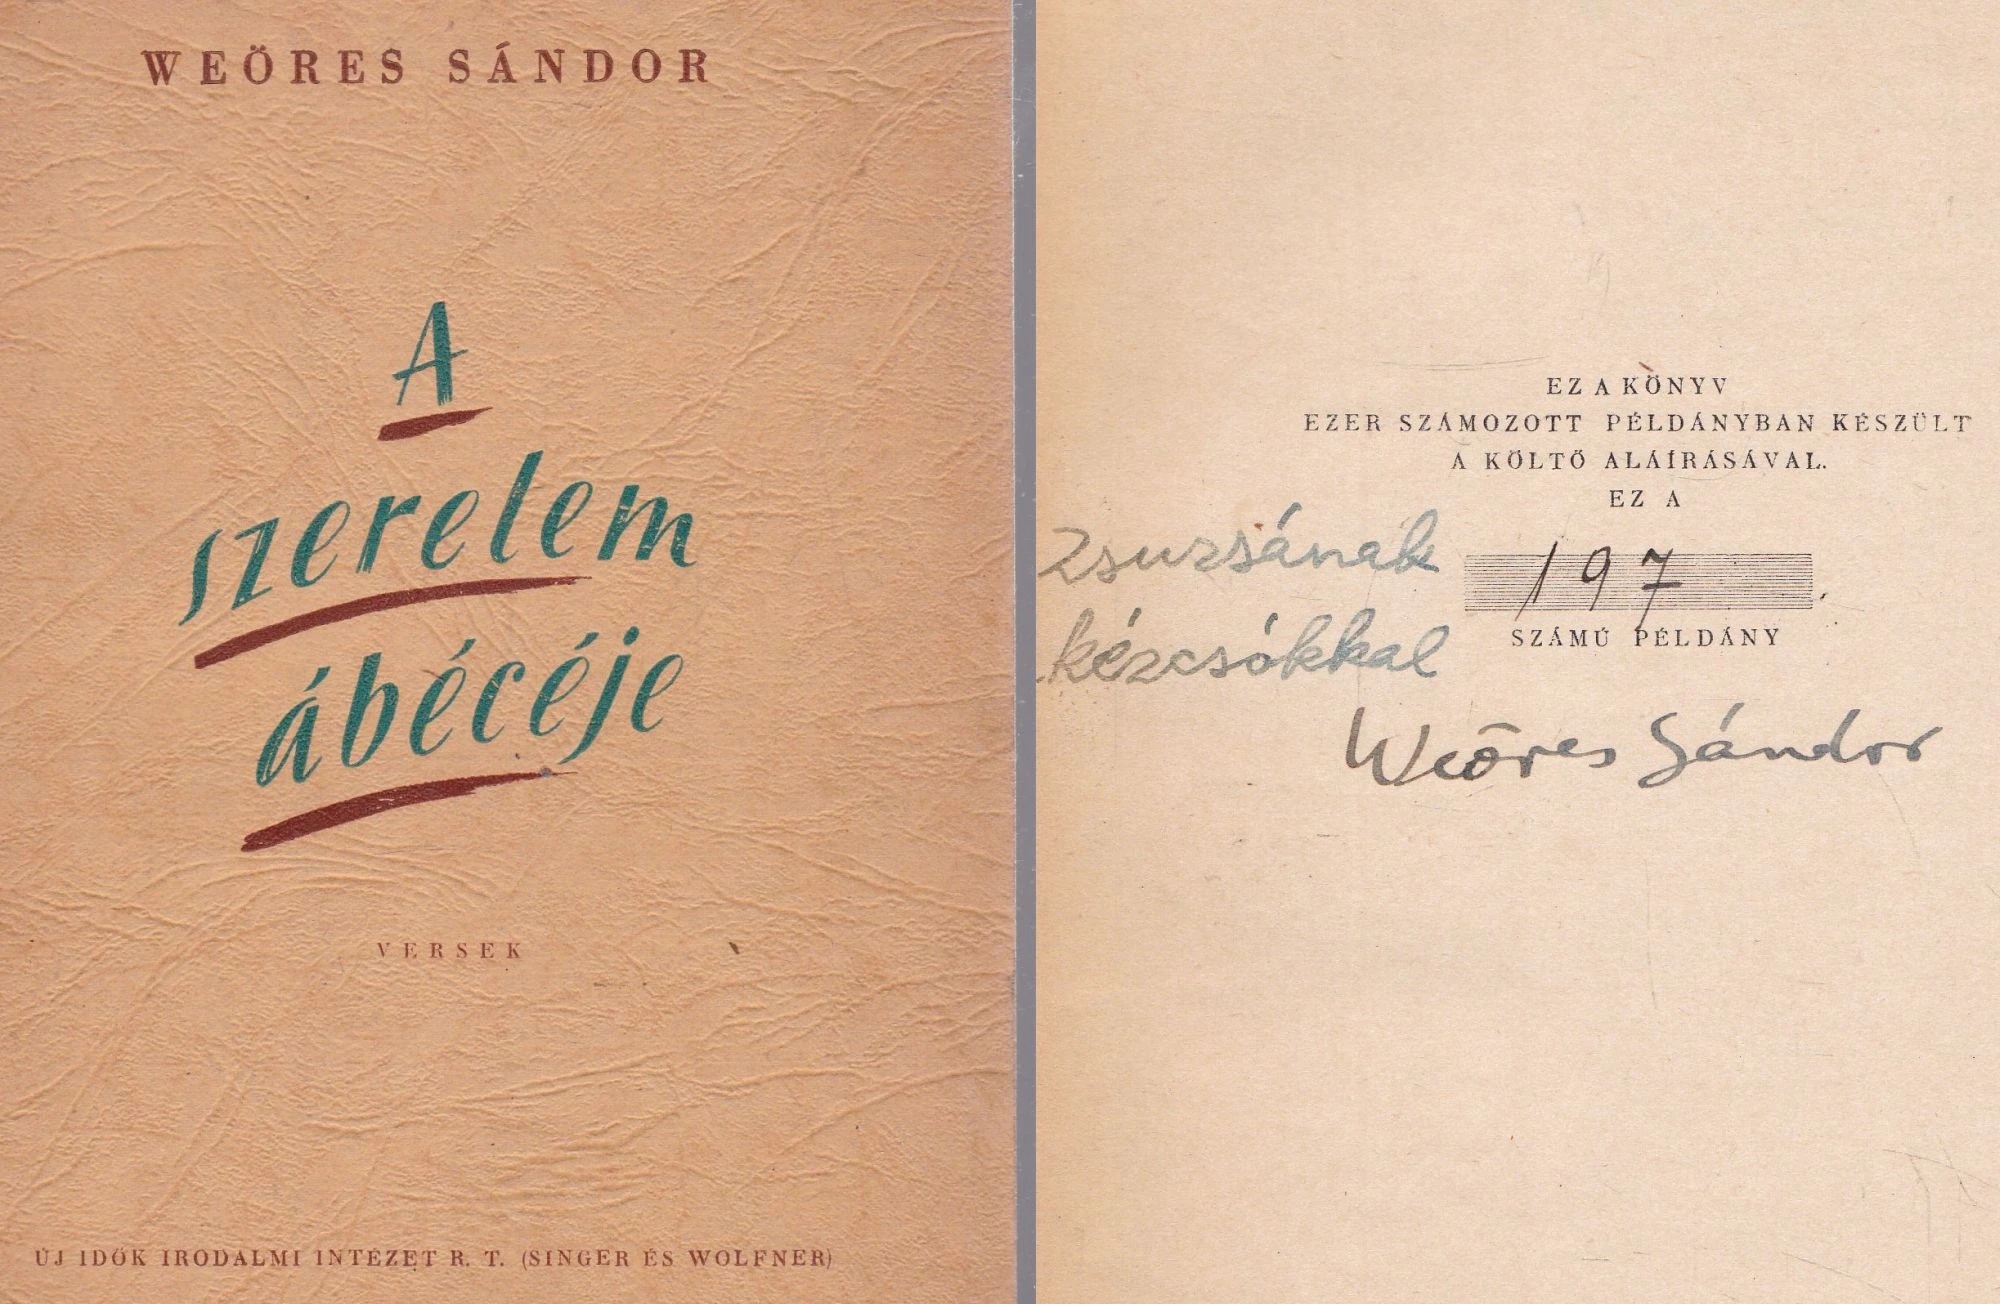 WEÖRES SÁNDOR
A
szerelem
ábécéje
VERSEK
ÚJ IDŐK IRODALMI INTÉZET R. T. (SINGER ÉS WOLFNER)
EZ A KÖNYV
EZER SZÁMOZOTT PÉLDÁNYBAN KÉSZÜLT
A KÖLTŐ ALÁÍRÁSÁVAL.
EZ A
197.
SZÁMÚ PÉLDÁNY
Zsuzsának
kézcsókkal
Weöres Sándor